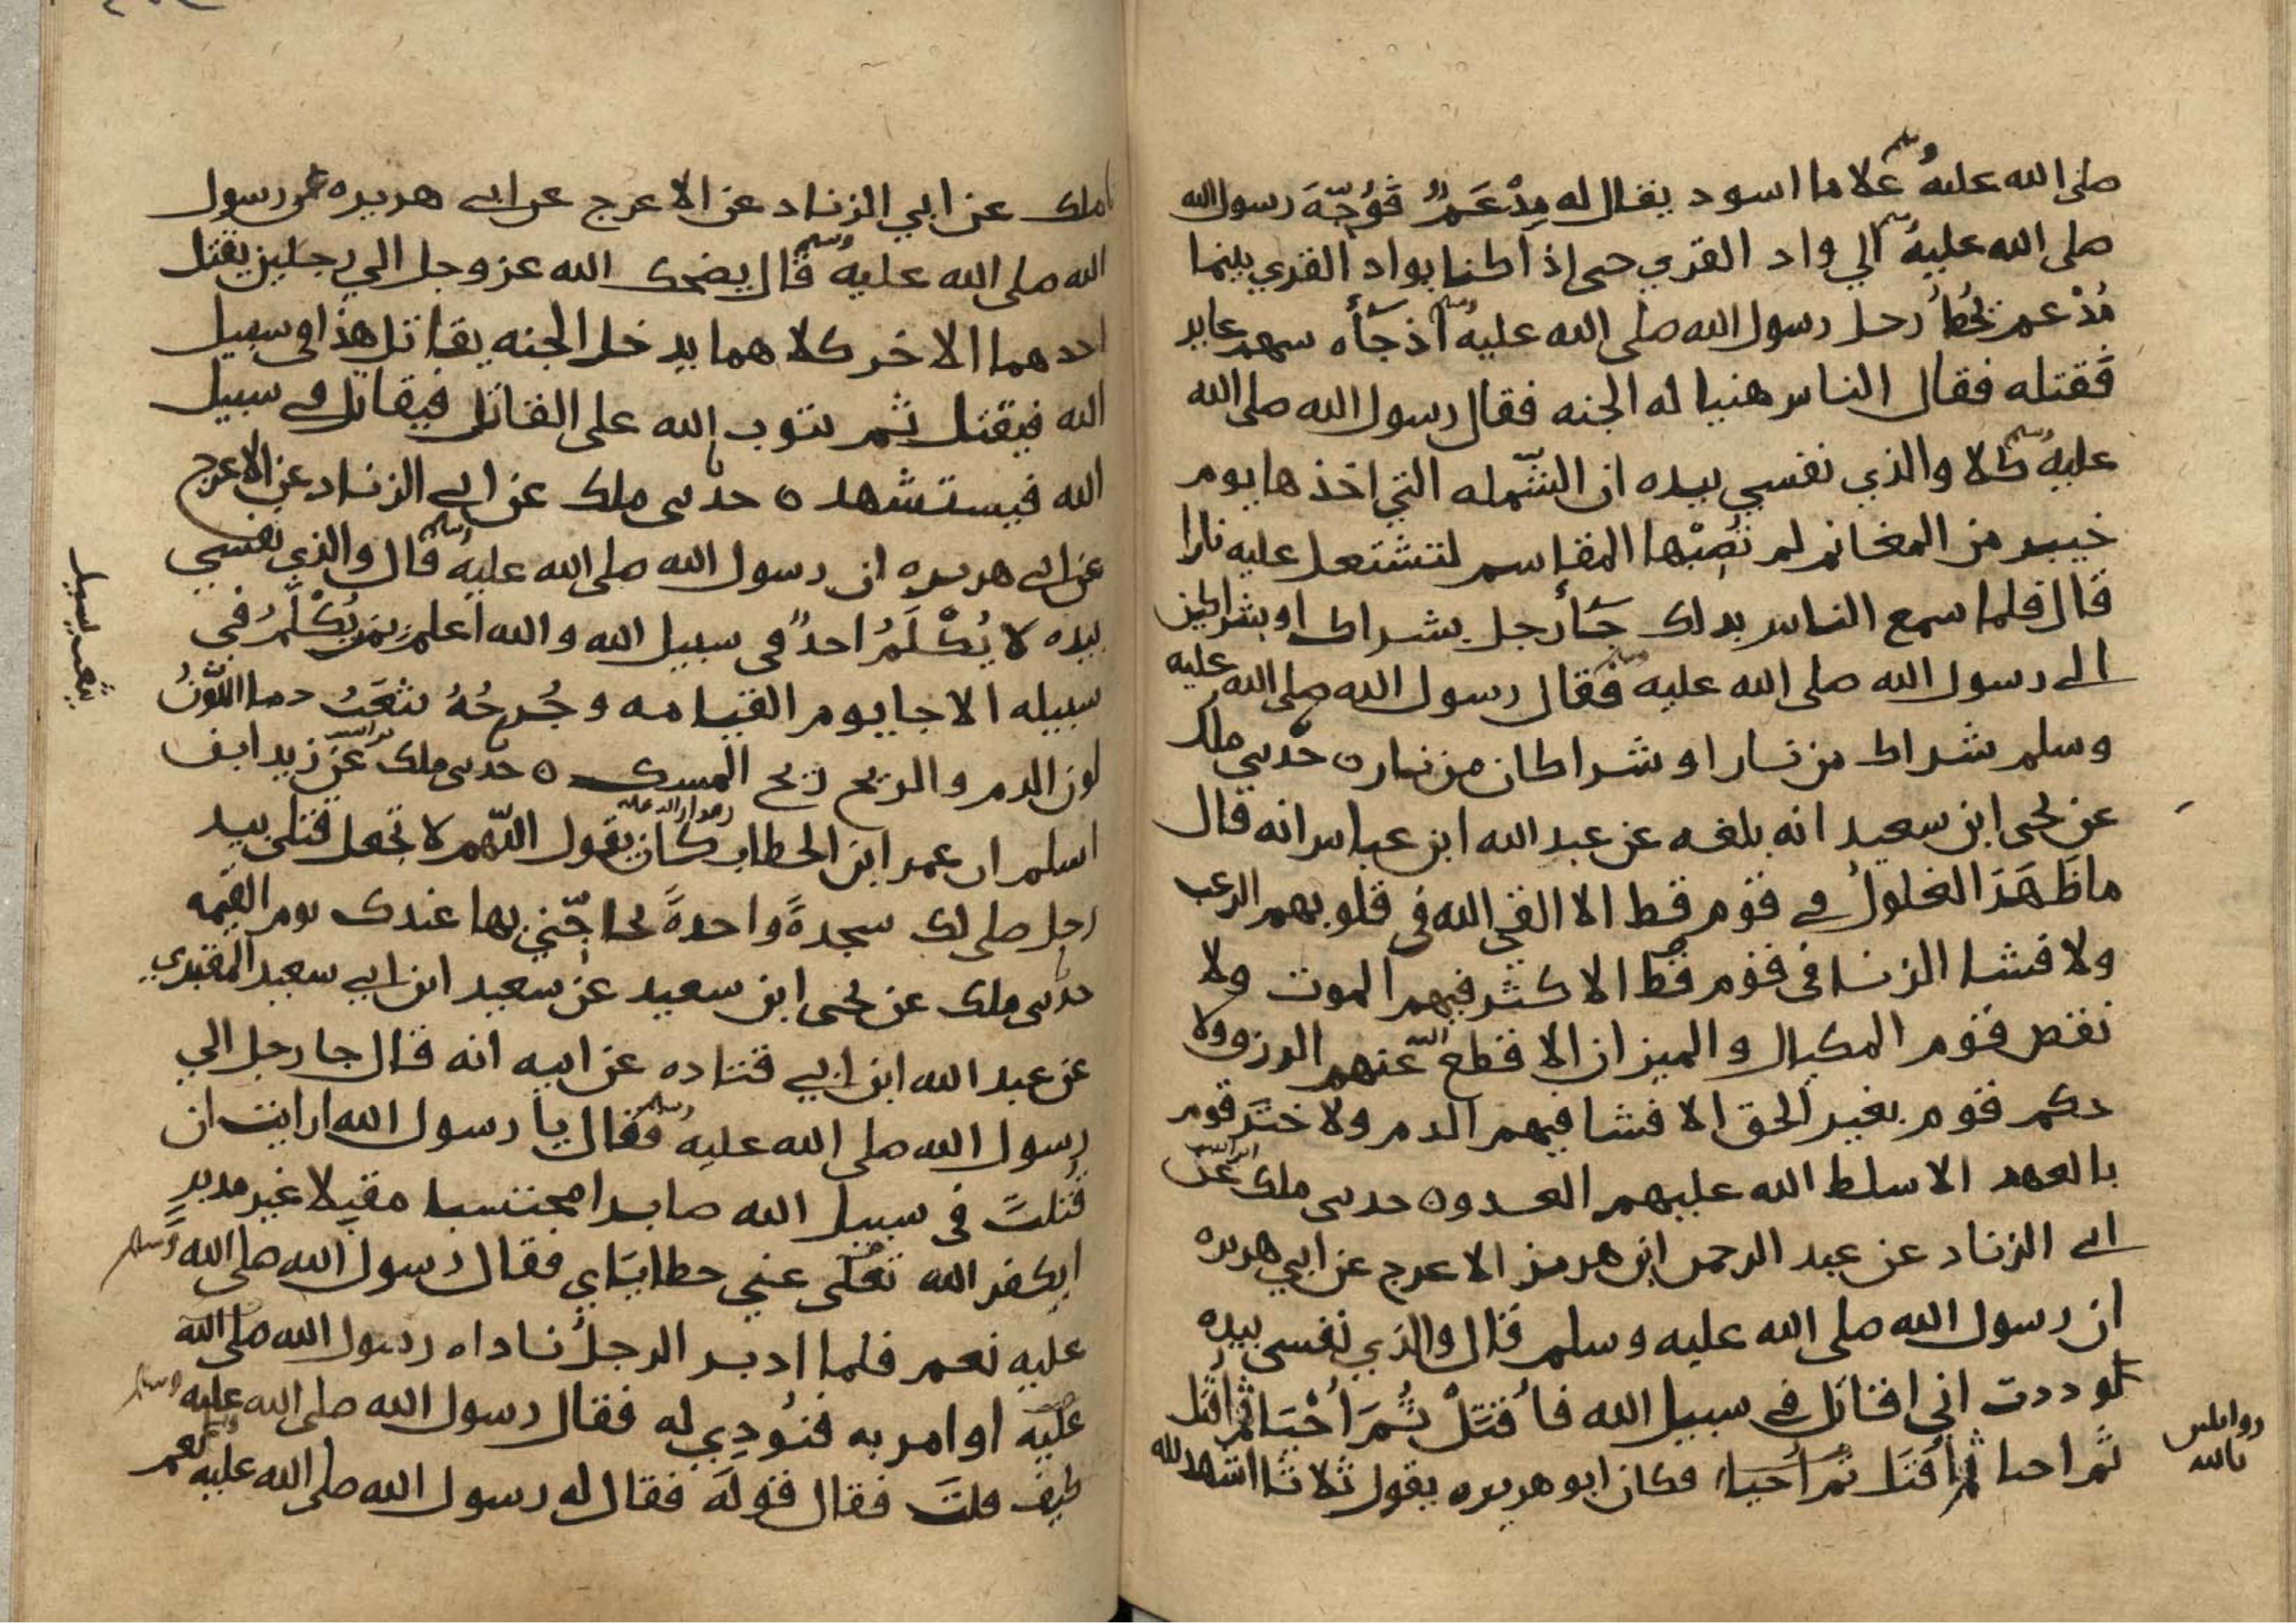 صلى الله عليه وسلم غلاما اسود يقال له مِدْعَمٌ فَوُجِّهَ رسول الله
صلى الله عليه وسلم الي واد القري حتى اذا كنا بواد القري بينما
مُدْعم يحُطُ رحل رسول الله صلى الله عليه وسلم اذ جآه سهم عاير
فقتله فقال الناس هنيا له الجنه فقال رسول الله صلى الله
عليه وسلم كلا والذي نفسي بيده ان الشّمله التي اخذها يوم
خيبر من المغانم لم تُصِبْها المقاسم لتشتعل عليه نارا
قال فلما سمع الناس بدلك جآ رجل بشراك او بشراكين
الى رسول الله صلى الله عليه وسلم فقال رسول الله صلى الله عليه
وسلم شراك من نار او شراكان من نار ه حدثني ملك
عن يحيى ابن سعيد انه بلغه عن عبد الله ابن عباس انه قال
ما ظَهَرَ الغلولُ في قوم قط الا القي الله في قلوبهم الرعب
ولا فشا الزنا في قوم قط الا كثر فيهم الموت ولا
نقص قوم المكيال والميزان الا قطع الله عنهم الرزق ولا
حكم قوم بغير الحق الا فشا فيهم الدم ولا ختَر قوم
بالعهد الا سلط الله عليهم العدو ه حدثني ملك عن
ابي الزناد عن عبد الرحمن ابن هرمز الاعرج عن ابي هريره
ان رسول الله صلى الله عليه وسلم قال والذي نفسي بيده
لوددت اني اقاتل في سبيل الله فأُقتَلْ ثُمَ أُحْيَا ثم اُقتل
ثم احيا ثم أقتَل ثم أحيا فكان ابو هريره يقول ثلاثا اشهد لله
بالله
ملك عن ابي الزناد عن الاعرج عن ابي هريره عن رسول
الله صلى الله عليه وسلم قال يضحك الله عز وجل الي رجلين يقتل
احدهما الاخر كلاهما يدخل الجنه يقاتل هذا في سبيل
الله فيقتل ثم يتوب الله على القاتل فيقاتل في سبيل
الله فيستشهد ه حدثني ملك عن ابي الزناد عن الاعرج
عن ابي هريره ان رسول الله صلى الله عليه وسلم قال والذي نفسي
بيده لا يُكْلَمُ احدٌ في سبيل الله والله اعلم بمن يُكْلَمُ في
سبيله الا جا يوم القيامه وجُرحُهُ يثعَبُ دما اللّونُ
لون الدم والريح ريح المسك ه حدثني ملك عن زيد ابن
اسلم ان عمر ابن الخطاب كان يقول اللّهم لا تجعل قتلي بيد
رجل صلى لك سجدةً واحدةً يحاجّني بها عندك يوم القيمه
حدثني ملك عن يحيى ابن سعيد عن سعيد ابن ابي سعيد المقبري
عن عبد الله ابن ابي قتاده عن ابيه انه قال جا رجل الي
رسول الله صلى الله عليه وسلم فقال يا رسول الله ارايت ان
قُتلتُ في سبيل الله صابرا محتسبا مقبلا غير مدبرٍ
ايكفر الله تعلى عني خطاياي فقال رسول الله صلى الله وسلم
عليه نعم فلما ادبر الرجلُ ناداه رسول الله صلى الله
عليه او امر به فنُودِي له فقال رسول الله صلى الله عليه وسلم
كيف قلتَ فقال قولَه فقال له رسول الله صلى الله عليه وسلم نعم
يثعب يسيل